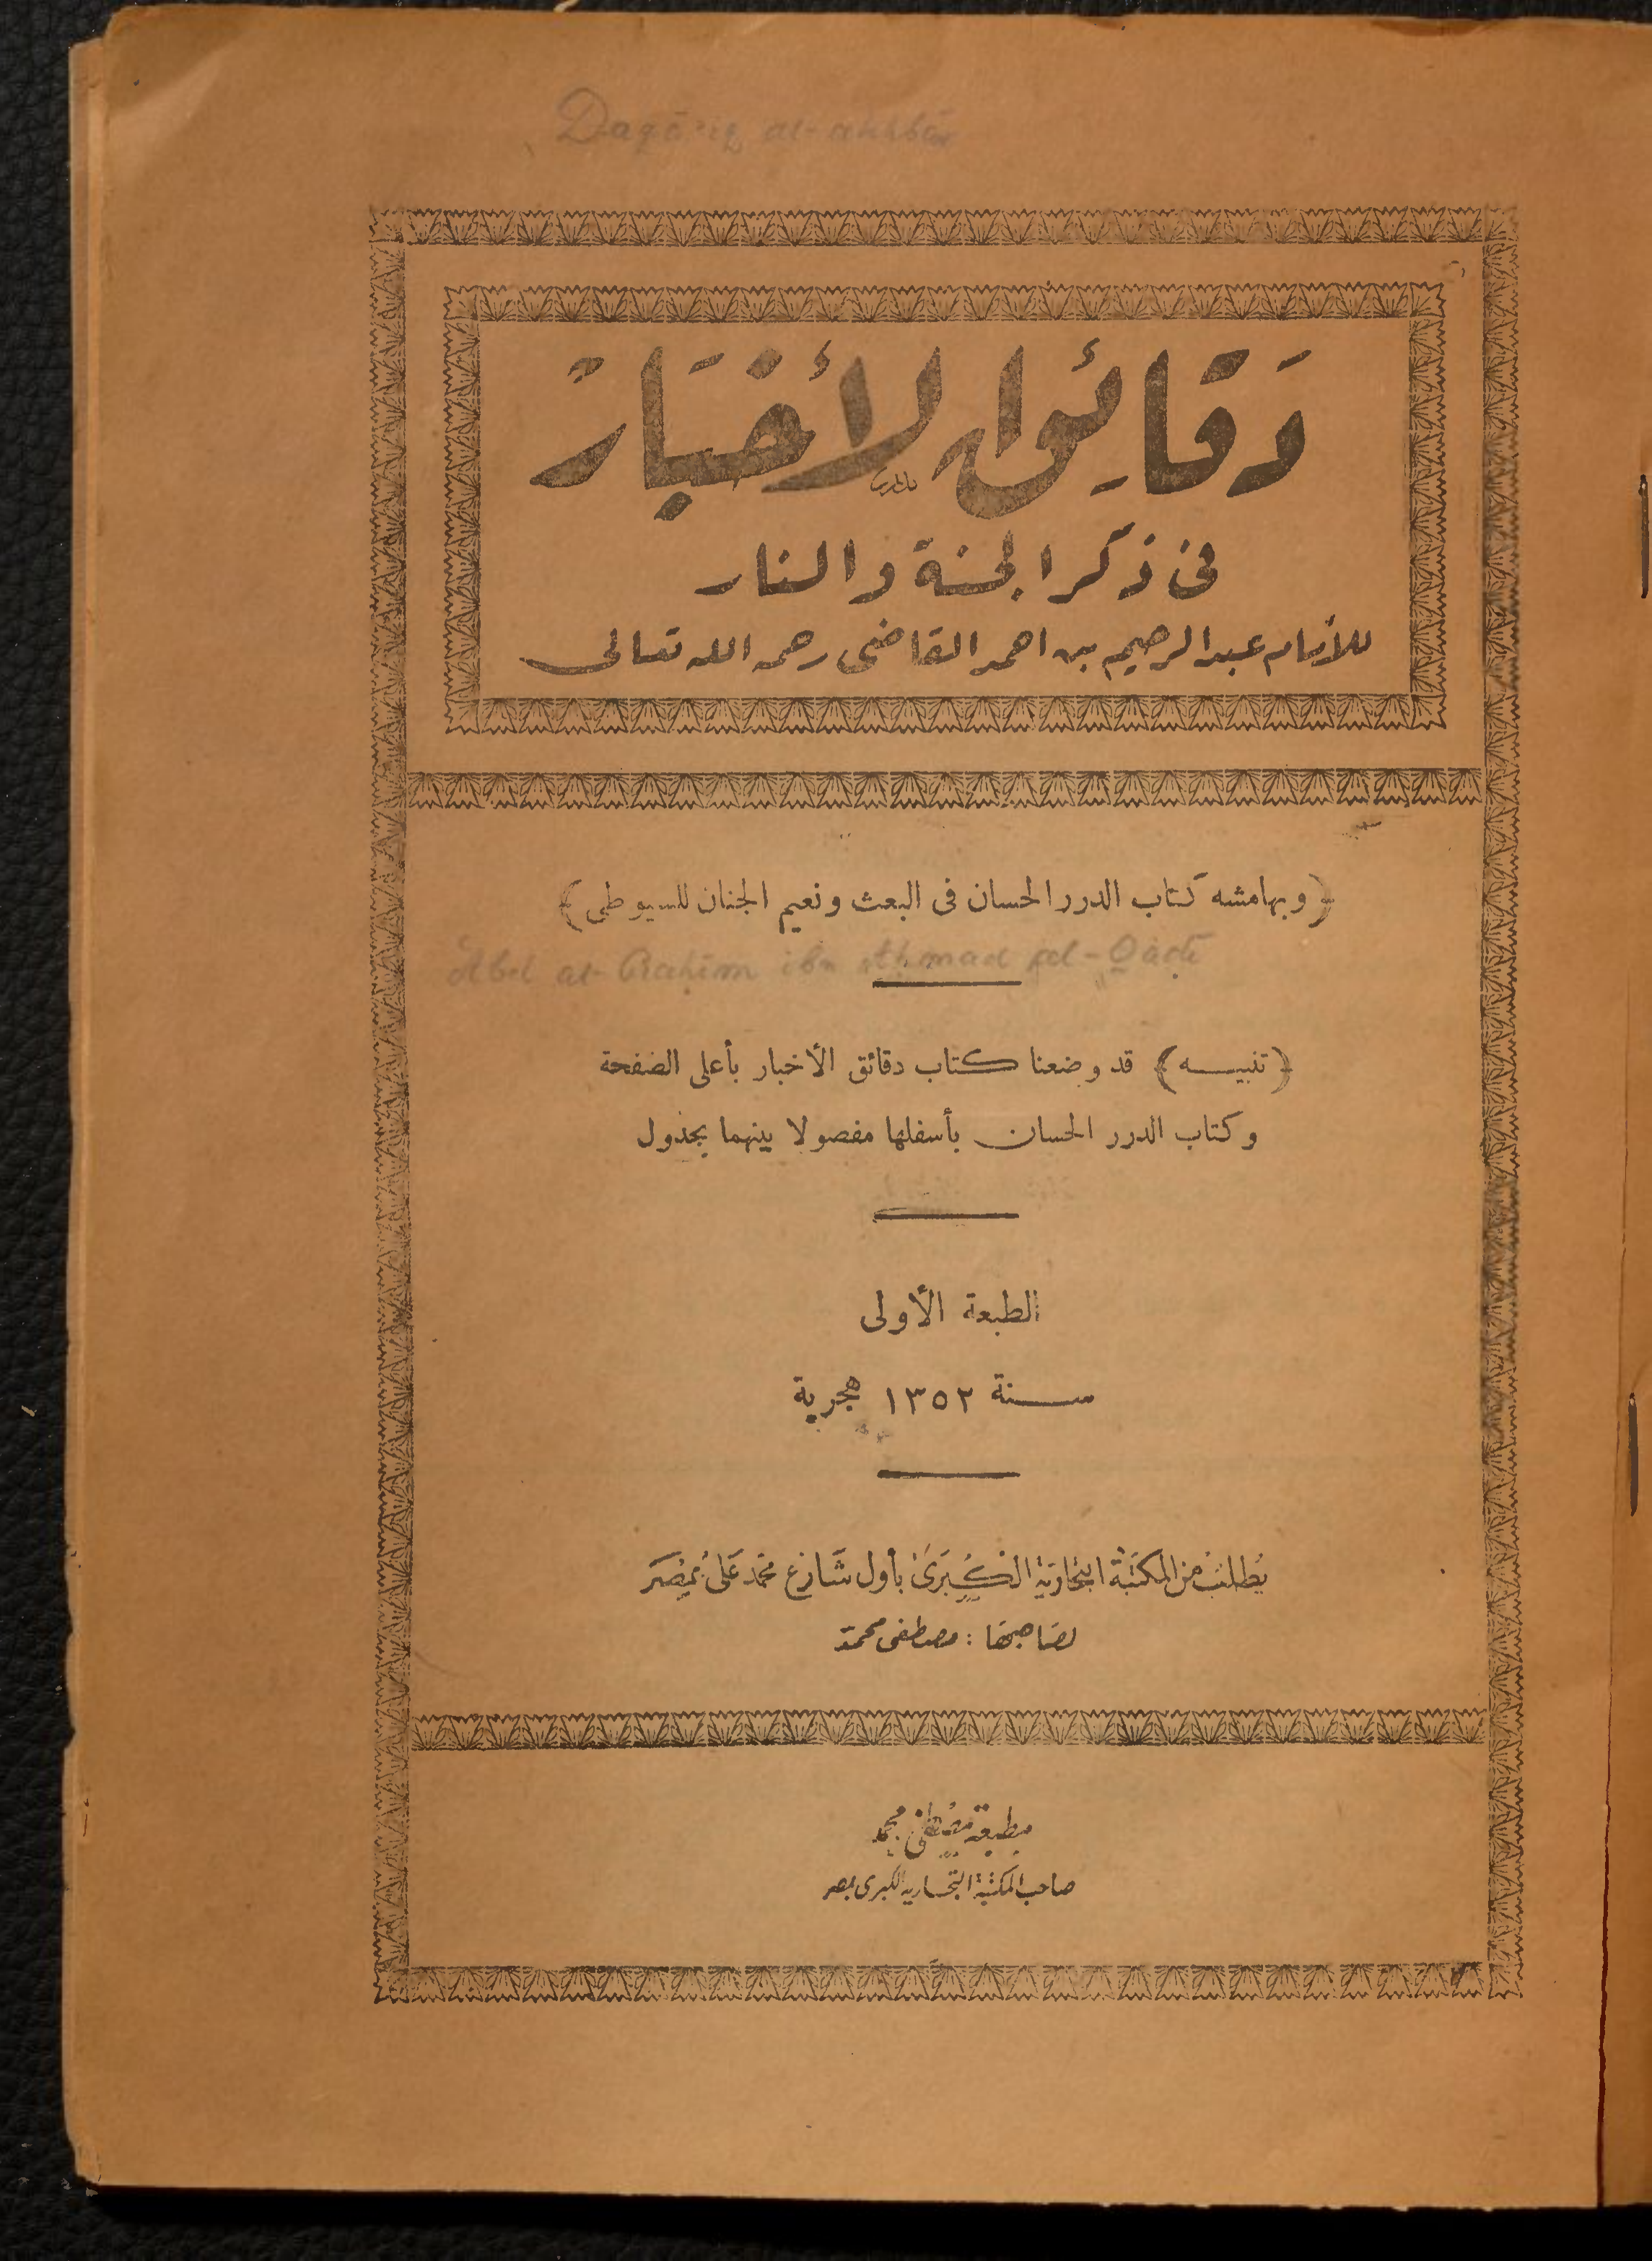 Daqā'iq al-akhbār
دَقَائِقُ الأَخْبَارُ
فى ذكر الجنة والنار
للأمام عبد الرحيم بن احمد القاضى رحمه الله تعالى
﴿وبهامشه كتاب الدرر الحسان فى البعث ونعيم الجنان للسيوطى﴾
Abd ar-Rahīm ibn Ahmad al-Qāḍī
﴿تنبيه﴾ قد وضعنا كتاب دقائق الأخبار بأعلى الصفحة
وكتاب الدرر الحسان بأسفلها مفصولا بينهما بجدول
الطبعة الأولى
سنة ١٣٥٢ هجرية
يُطلبُ من المكتَبة التِجَاريَة الكُبرَىٰ بأول شَارع محمَّد عَلىٰ بمِصَر
لصَاحبهَا : مصطفى محمد
مطبعة مصطفى محمد
صاحب المكتبة التجارية الكبرى بمصر